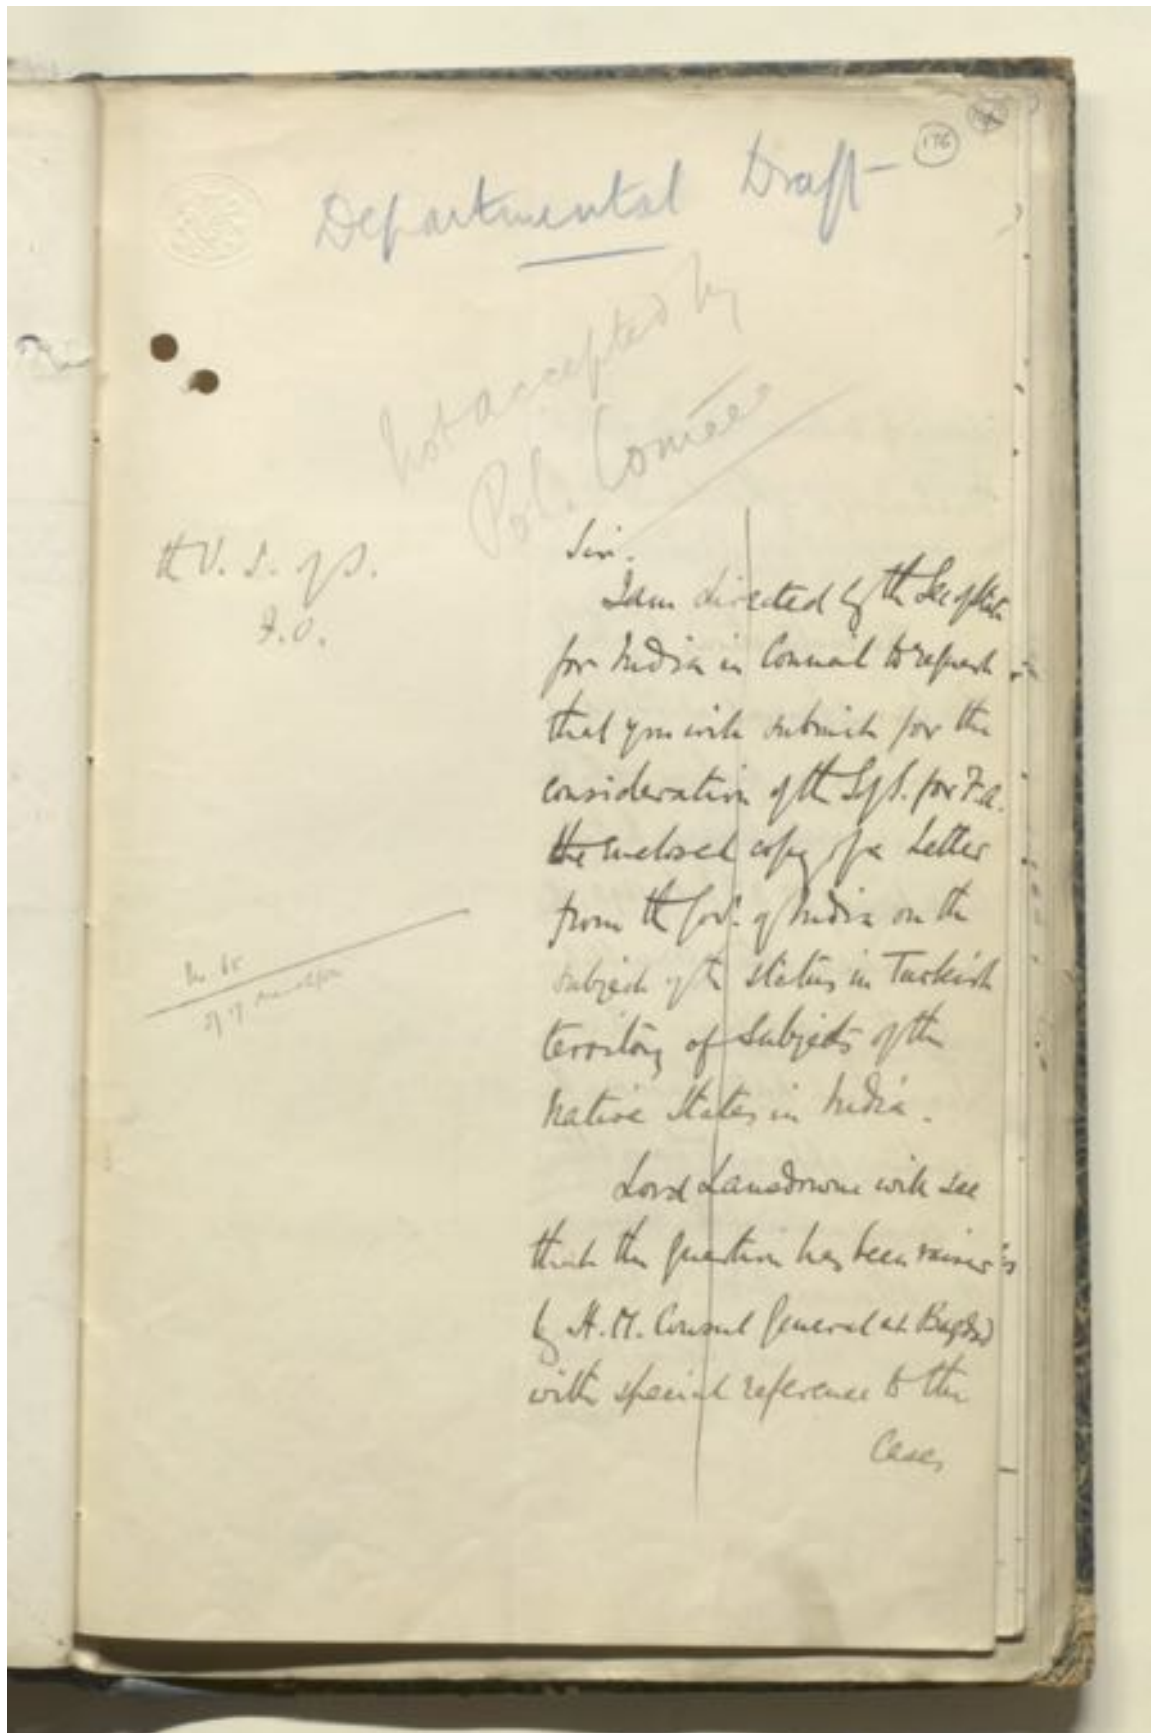 176
Departmental Draft -
not accepted by
Pol. Comtee
Sir.
th U. S. of S.
F.O.
I am directed by th Sec of State
for India in Council to request
that you will submit for the
consideration of th S of S. for F.A.
the enclosed copy of a Letter
from th Govt. of India on the
subject of th status in Turkish
territory of subjects of the
Native States in India.
Lord Lansdowne will see
that the question has been raised
by H.M. Consul General at Bagdad
with special reference to the
Cases